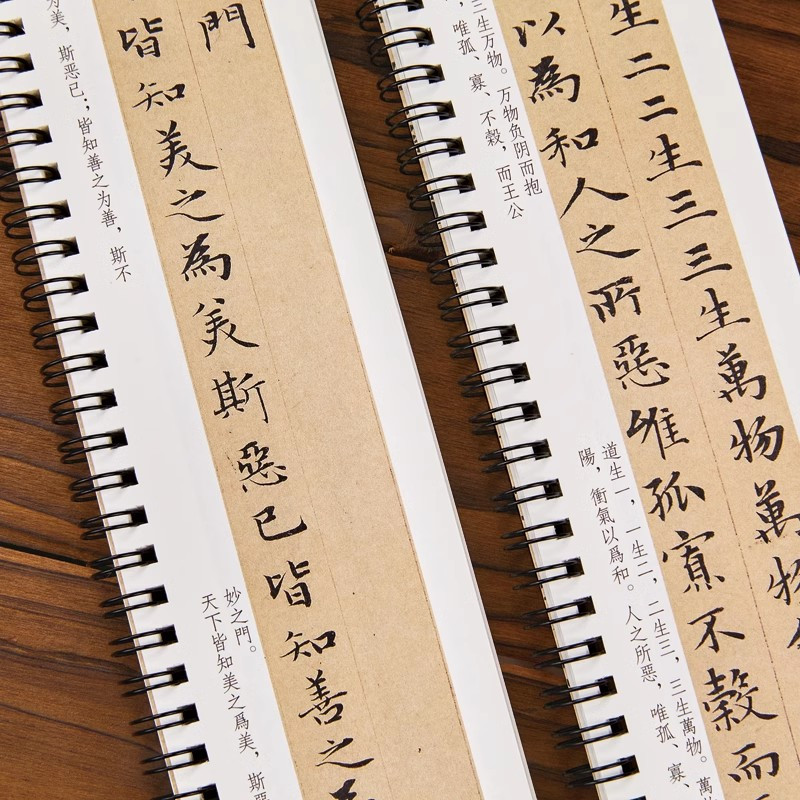 門
皆知美之為美斯惡已皆知善之
为美，斯惡已；皆知善之为善，斯不
妙之門。
天下皆知美之爲美，斯惡
生二二生三三生萬物萬物
以為和人之所惡唯孤寡不穀而
三生万物。万物负阴而抱
唯孤、寡、不穀，而王公
道生一，一生二，二生三，三生萬物。萬
陽，衝氣以爲和。人之所惡，唯孤、寡、